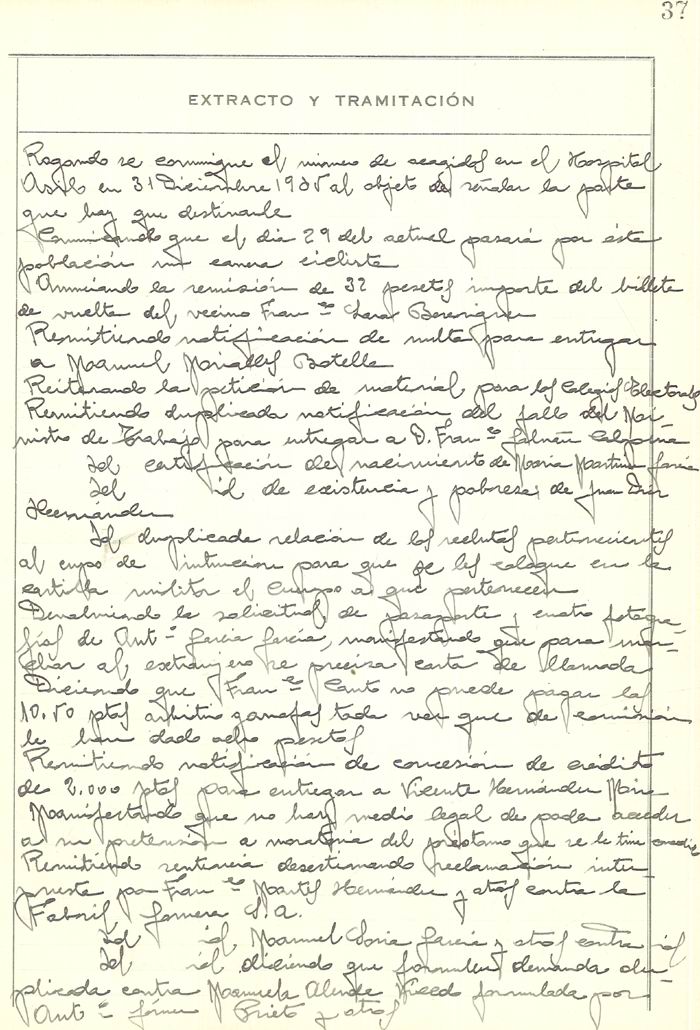 37
EXTRACTO Y TRAMITACIÓN
Rogando se comunique el número de acogidos en el Hospital
Asilo en 31 Diciembre 1935 al objeto de señalar la parte
que hay que destinarle
Comunicando que el dia 29 del actual pasará por ésta
población una carrera ciclista
Anunciando la remisión de 32 pesetas importe del billete
de vuelta del vecino Franco
Remitiendo notificación de multa para entregar
a Manuel Botella
Reiterando la petición de material para los Colegios Electorales
Remitiendo duplicada notificación del fallo del Mi-
nistro de Trabajo para entregar a D. Franco
Id certificación de nacimiento de Maria Martinez Garcia
Id id de existencia y pobreza de Juan Diez
Hernandez
Id duplicada relación de los reclutas pertenecientes
al cupo de instrucción para que se les coloque en la
cartilla militar el Cuerpo a que pertenecen
Devolviendo la solicitud de pasaporte y cuatro fotogra-
fías de Anto Garcia Garcia, manifestando que para mar-
char al extranjero se precisa carta de llamada
Diciendo que Franco Canto no puede pagar las
10.50 ptas arbitrio toda vez que de comisión
le han dado ocho pesetas
Remitiendo notificación de concesión de crédito
de 2.000 ptas para entregar a Vicente Hernández
Manifestando que no hay medio legal de poder acceder
a su pretensión a moratoria del préstamo que se le tiene
Remitiendo sentencia desestimando reclamación inter-
puesta por Franco Hernández y otros contra la
Fabril S.A.
Id id, Manuel Soria Garcia y otros contra id
Id id diciendo que formulen demanda du-
plicada contra Manuela formulada por
Anto Prieto y otros